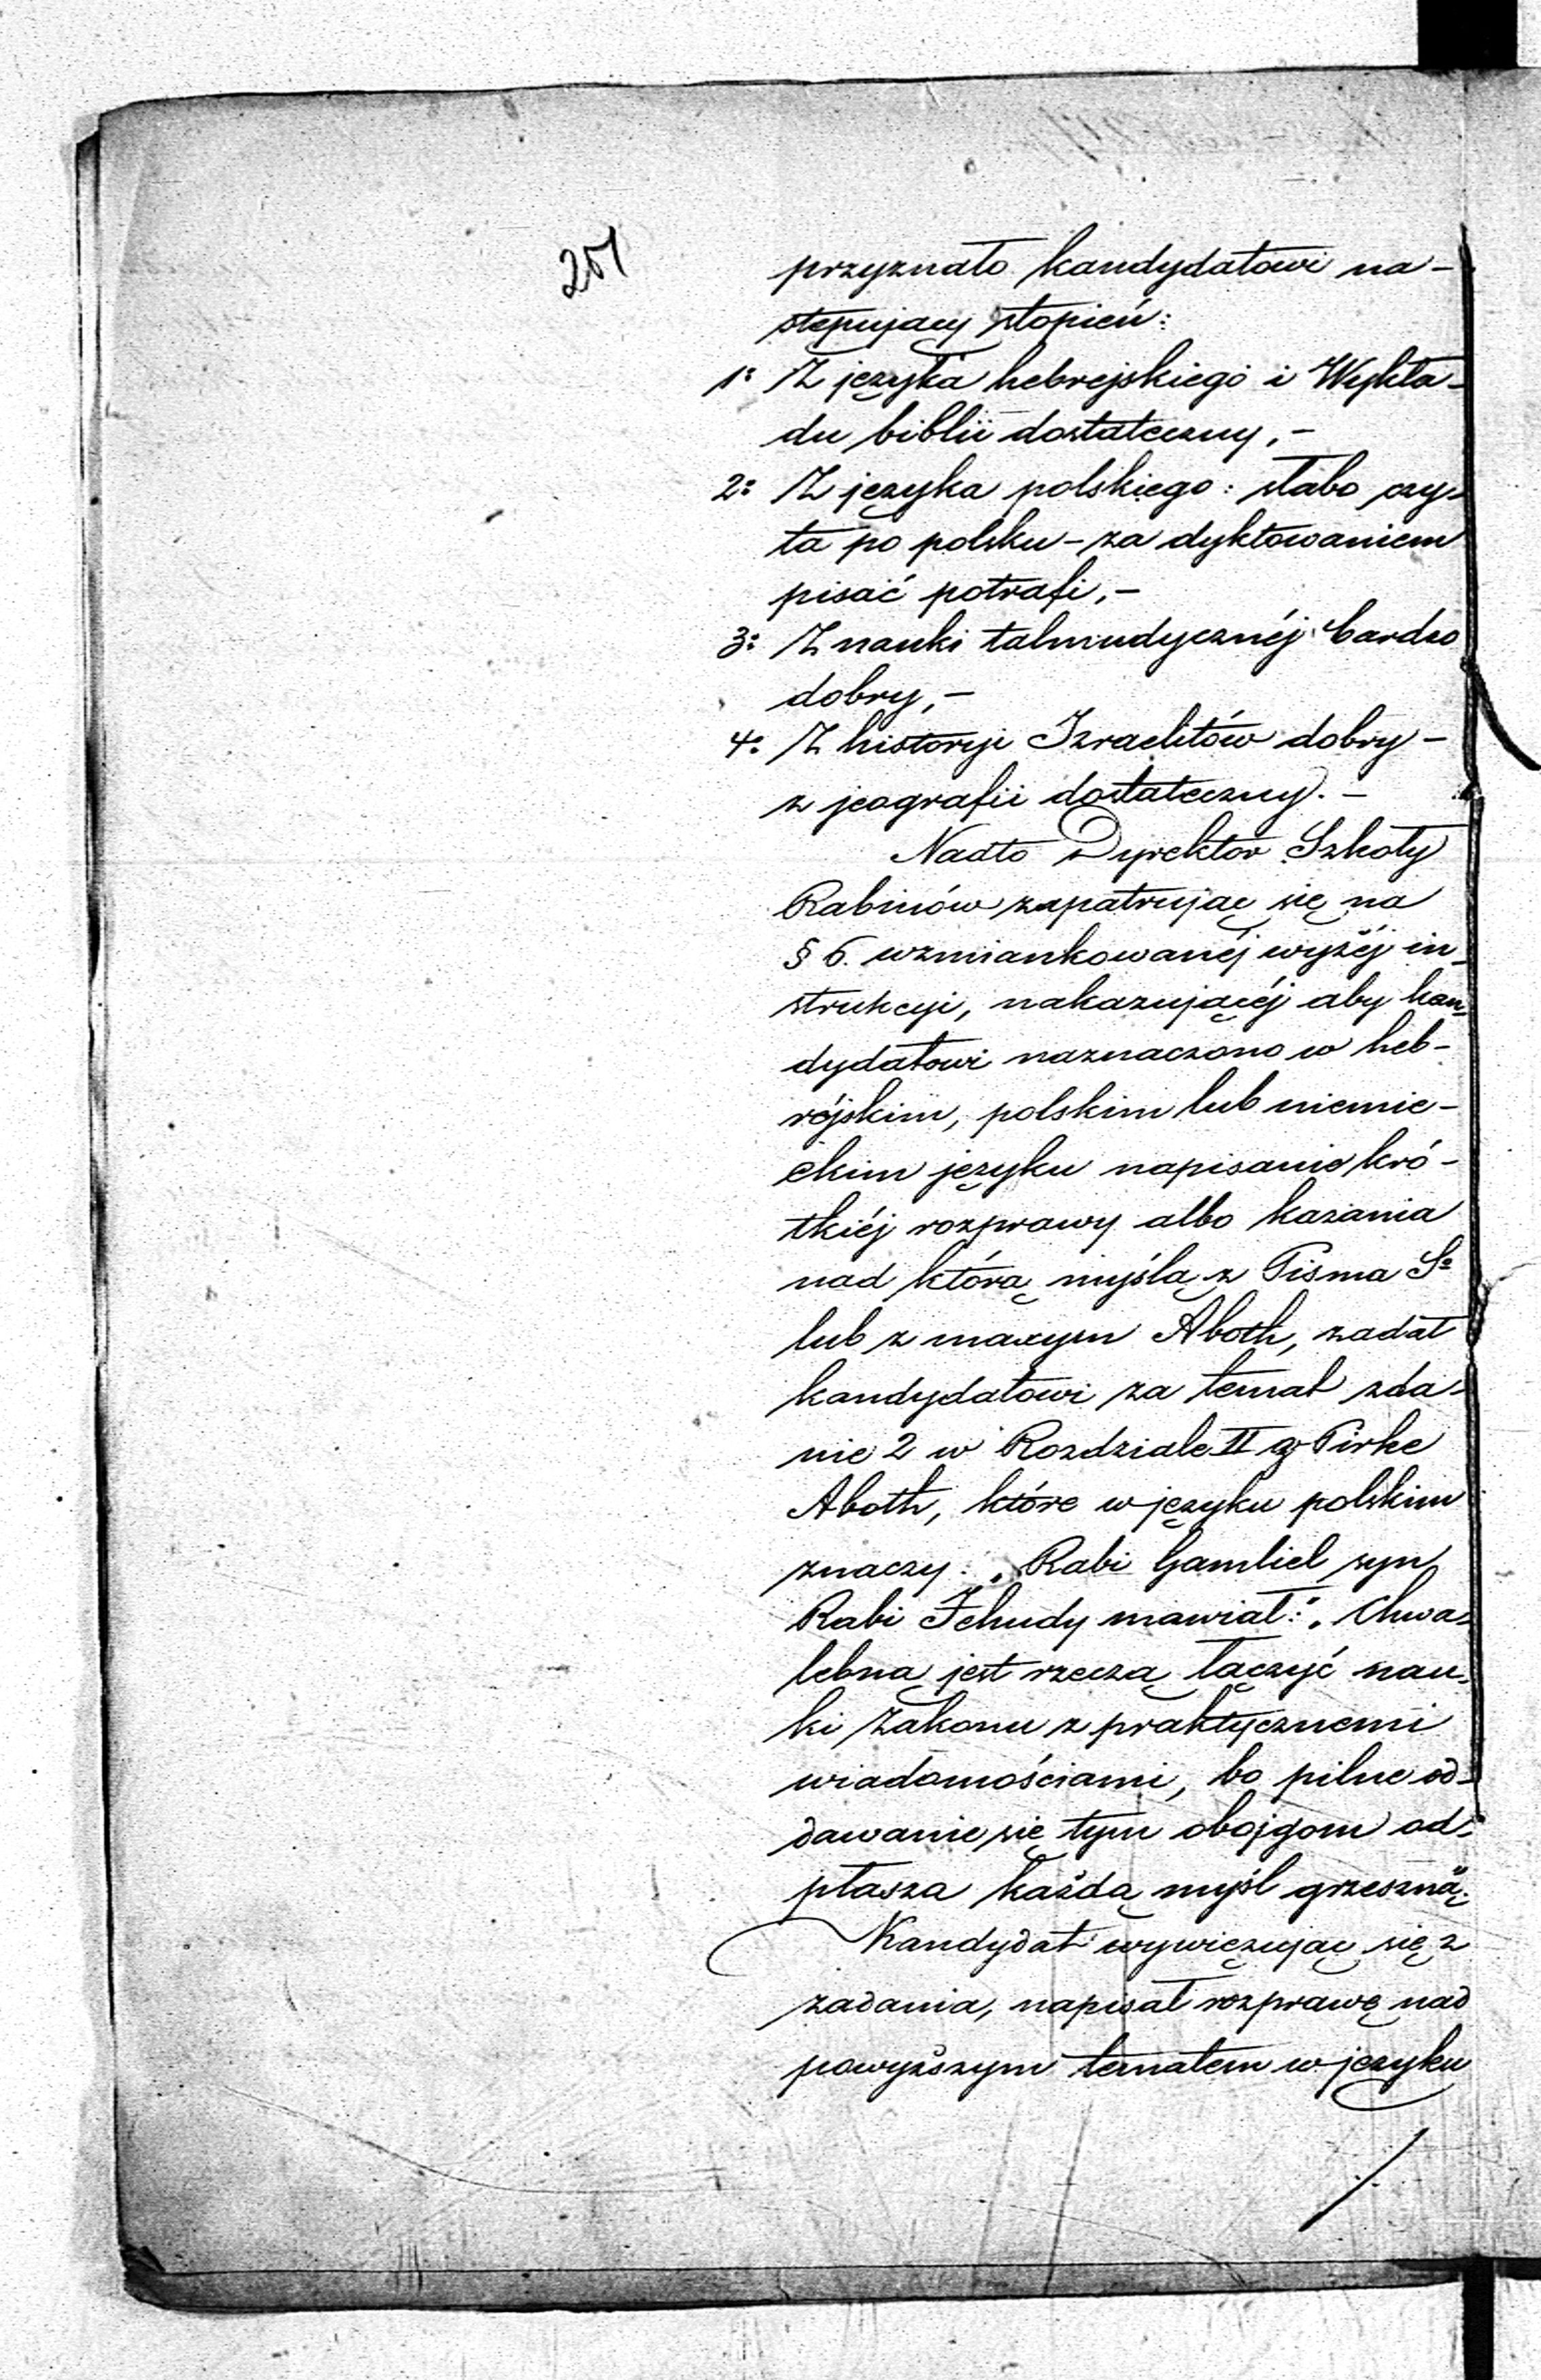 251
przyznało kandydatowi na-
stępujący stopień:
1o Z języka hebrejskiego i Wykła-
du biblii dostateczny, -
2o Z języka polskiego: słabo czy-
ta po polsku - za dyktowaniem
pisać potrafi, -
3o Z nauki talmudycznéj bardzo
dobry, -
4o Z historyi Izraelitów dobry -
z jeografii dostateczny. -
Nadto Dyrektor Szkoły
Rabinów zapatrując się na
§ 6. wzmiankowanéj wyżéj in-
strukcyi, nakazującéj aby kan-
dydatowi naznaczono w heb-
rejskim, polskim lub niemie-
ckim języku napisanie kró-
tkiéj rozprawy albo kazania
nad którą myślą z Pisma So
lub z maxym Aboth, zadał
kandydatowi za temat zda-
nie 2 w Rozdziale II z Pirke
Aboth, które w języku polskim
znaczy: „Rabi Gamliel syn
Rabi Jehudy mawiał:" „Chwa-
lebną jest rzeczą łączyć nau-
ki Zakonu z praktycznemi
wiadomościami, bo pilne od-
dawanie się tym obojgom od-
płasza każdą myśl grzeszną."
Kandydat wywięzując się z
zadania, napisał rozprawę nad
powyższym tematem w języku